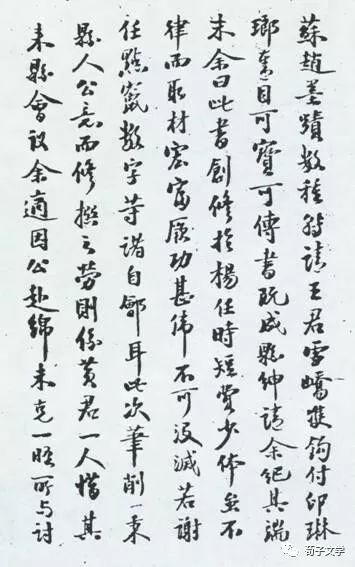 蘇趙墨蹟數種請王君雪嶠雙鈎付印琳
瑯目可寶可傳書既成縣紳請余紀其端
末余曰此書創修於楊任時短費少体不
律而取材宏富厥功甚偉不可没滅若謝
任點竄數字等諸自鄶耳此次筆削一秉
縣人公意而修撰之勞則係黃君一人惜其
來縣會议余適因公赴綿未克一晤所与討
荀子文学